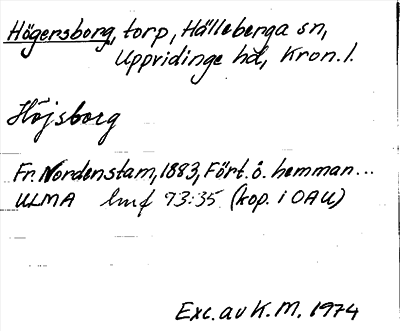 Högersborg, torp, Hälleberga sn,
Uppvidinge hd, Kron. l.
Höjsborg
Fr. Nordenstam, 1883, Fört. ö. hemman...
ULMA lmf 73:35 (kop. i OAU)
Exc. av K. M. 1974